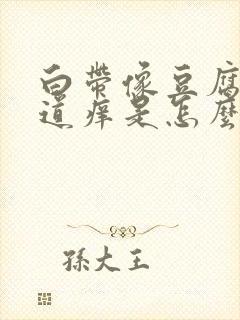 白帶像豆腐
道痒是怎麼
孫大王